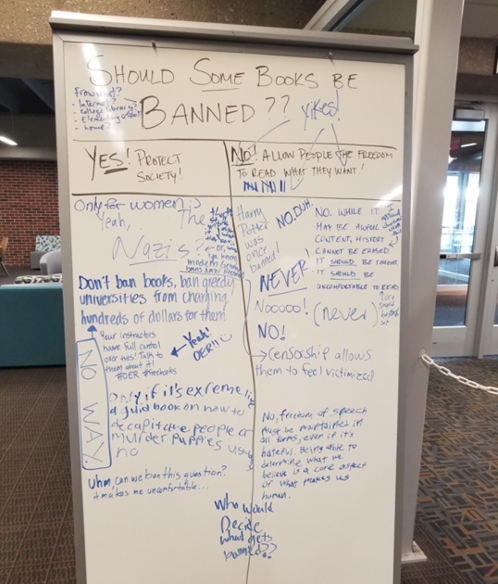 SHOULD SOME BOOKS BE
BANNED??
From what?
- Internet
- College library?
- Elementary school
- home
yikes!
YES! PROTECT
SOCIETY!
NO! ALLOW PEOPLE THE FREEDOM
TO READ WHAT THEY WANT!
Only for women's
Yeah,
The
Nazis?
Don't ban books, ban greedy
universities from charging
hundreds of dollars for them
Your instructors
have full control
over this! Talk to
them about it!
#OER
Yeah!
OER!!
NO WAY.
Only if it's extreme like
a guid book on how to
decapitate people or
murder puppies
no
Uhm, can we ban this question?
it makes me uncomfortable...
Harry
Potter
was
once
banned!
NO, DUH.
NO. WHILE IT
MAY BE AWFUL
CONTENT, HISTORY
CANNOT BE ERASED.
IT SHOULD BE
IT SHOULD BE
UNCOMFORTABLE TO READ
NEVER
Nooooo!
(never)
NO!
Censorship allows
them to feel victimized
No, freedom of speech
must be maintained in
all forms, even if it's
hateful. Being able to
determine what we
believe is a core aspect
of what makes us
human.
Who would
Decide
what gets
banned??